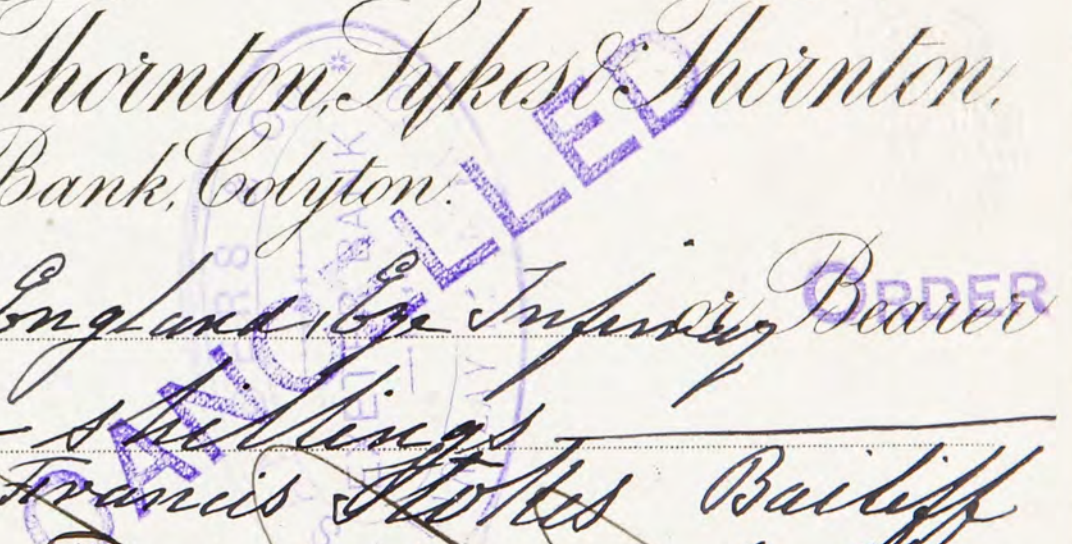 Thornton, Sykes & Thornton.
Bank, Colyton.
England, Eye Infirmary or Bearer
ORDER
shillings
Francis Stokes Bailiff
CANCELLED